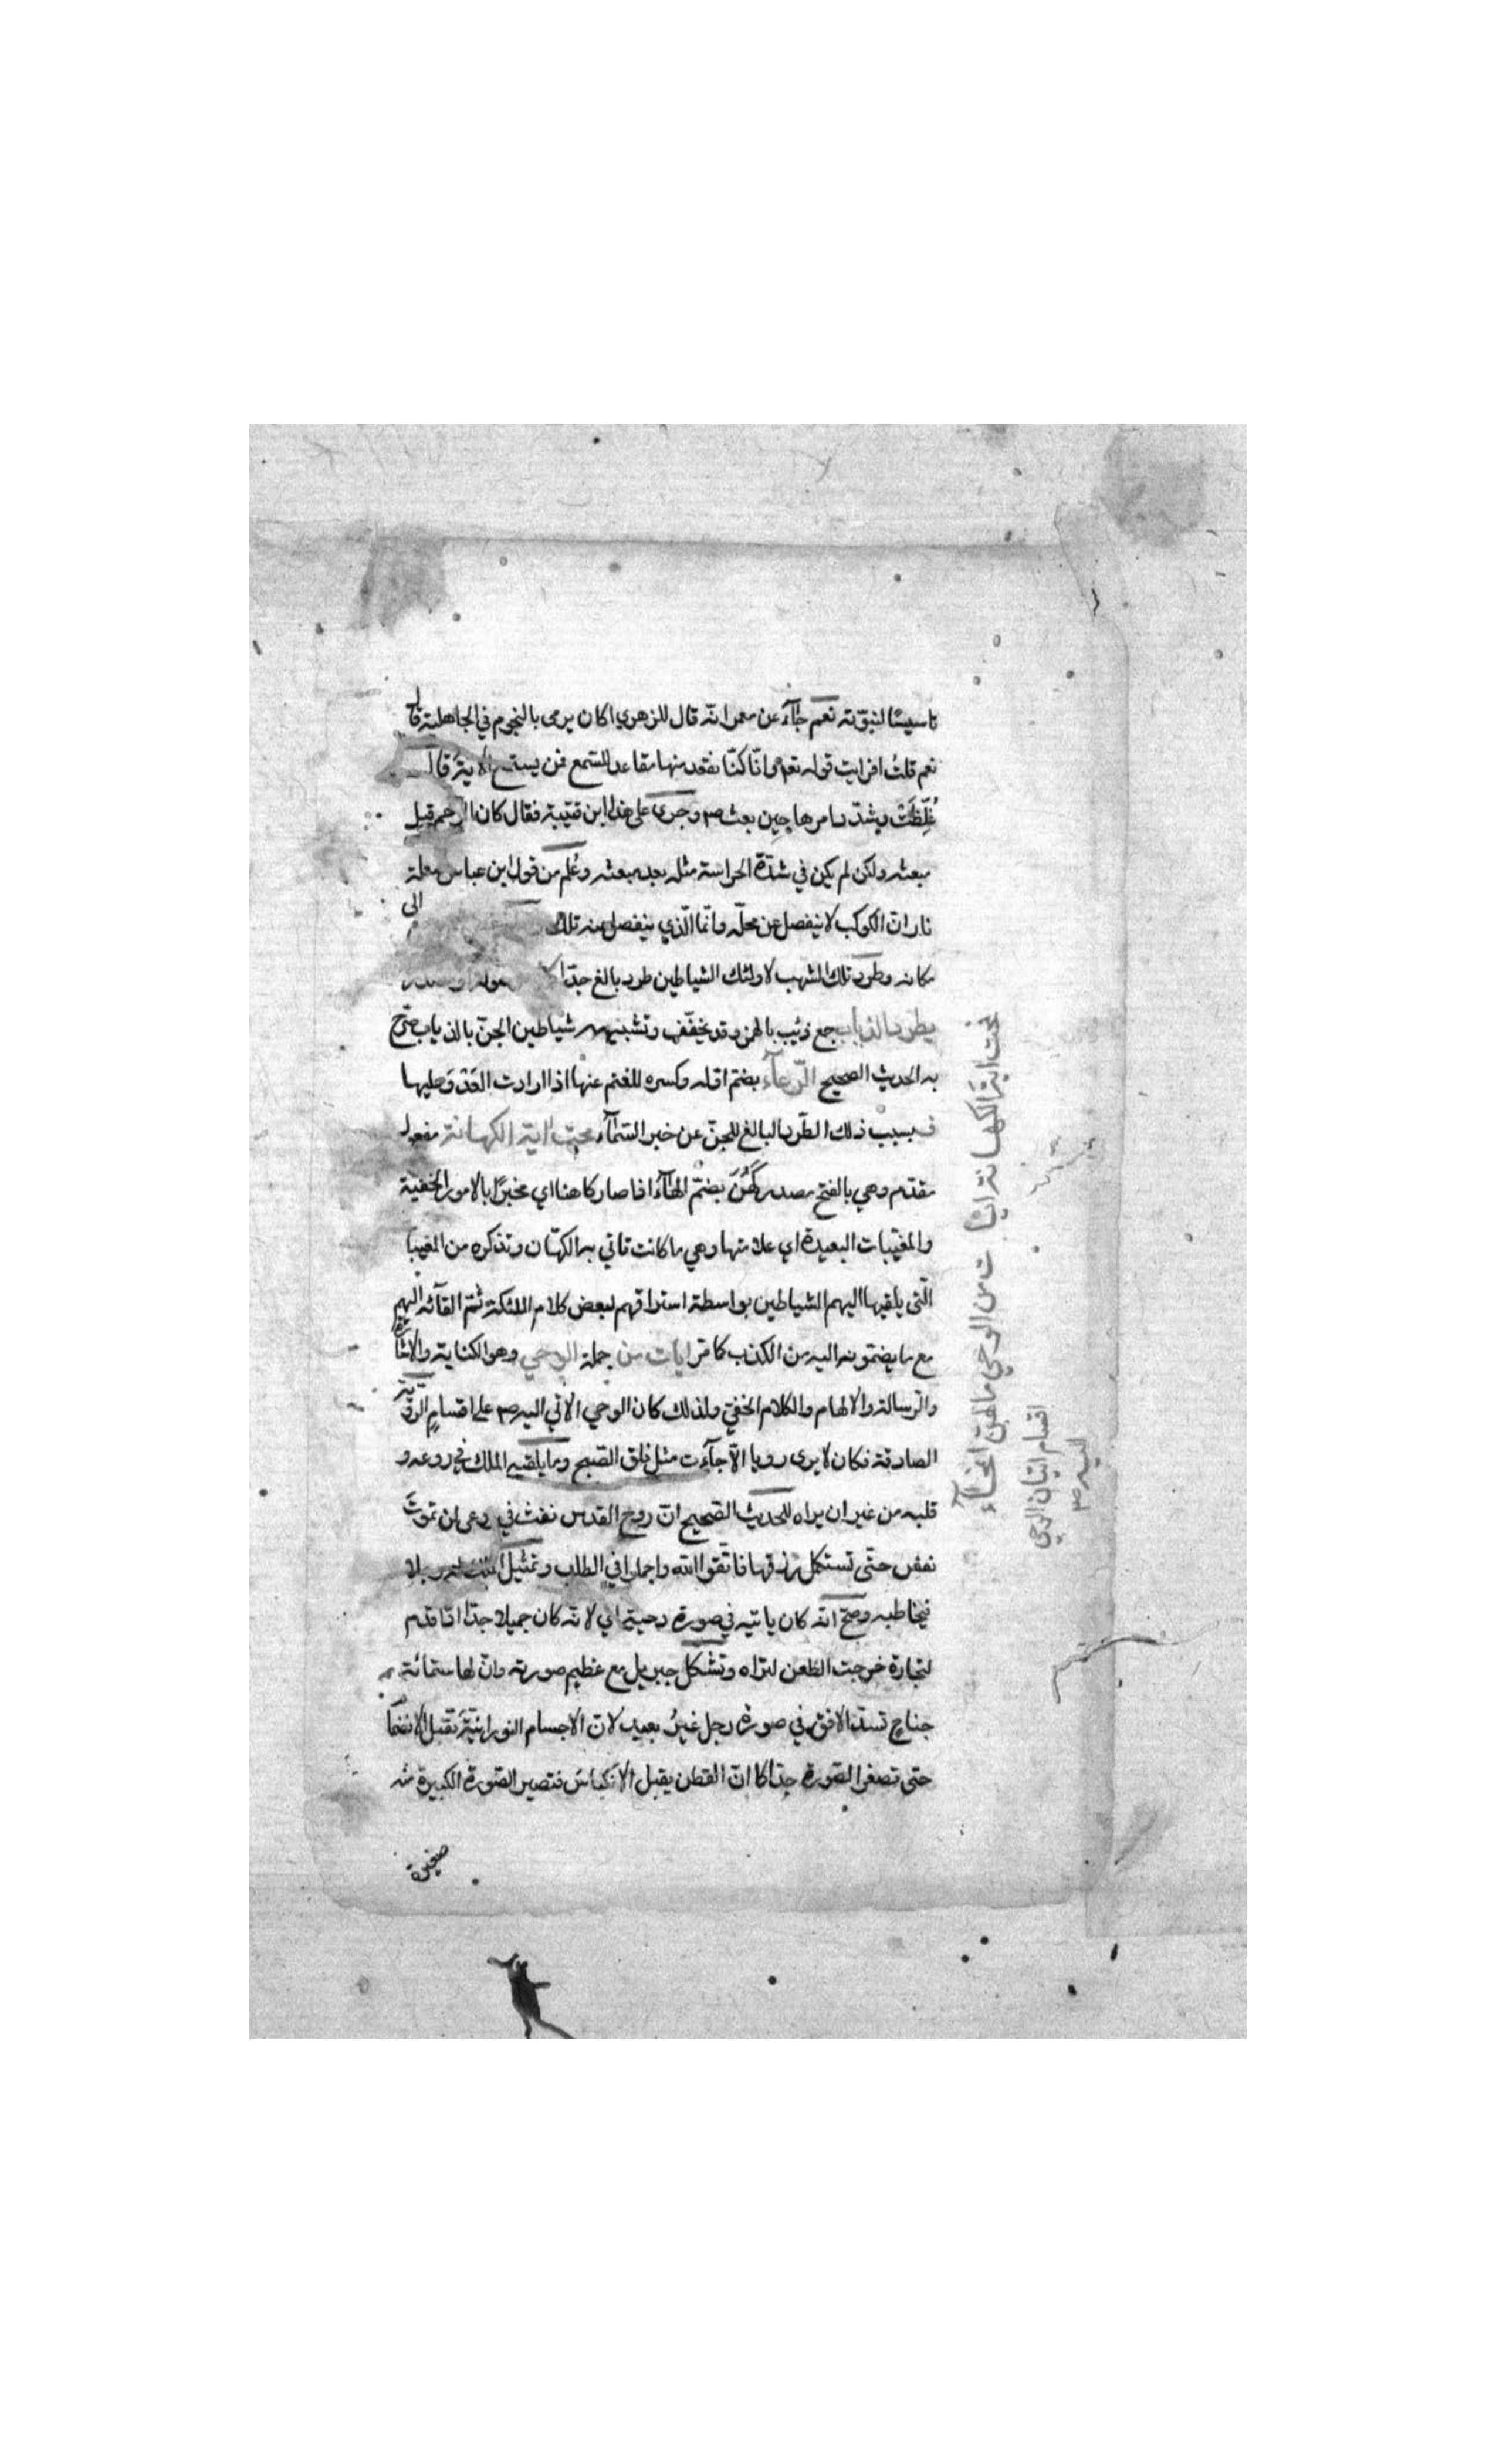 تاسيسًا لنبوّته نعم جآء عن معمر انّه قال للزهري اكان يرمى بالنجوم في الجاهلية قال
نعم قلتُ افرايت قوله تعم وانّا كنّا نقعد منها مقاعد للسّمع فمن يستمع الاية قال
غُلِّظَتْ وشدّد امرها حين بعث ص وجرى على هذا ابن قتيبة فقال كان الرجم قبل
مبعثه ولكن لم يكن في شدّة الحراسة مثله بعد مبعثه وعُلم من قول ابن عباس
نار انّ الكوكب لا ينفصل عن محلّه وانّما الّذي ينفصل منه تلك الى
مكانه وطرد تلك الشهب لاولئك الشياطين طرد بالغ جدّا
يطرد الذياب جمع ذئيب بالهمز وقد يخفّف وتشبيه شياطين الجنّ بالذياب صرّح
به الحديث الصحيح الرّعآء بضمّ اوّله وكسره للغنم عنها اذا ارادت العَدْوَ عليها
فبسبب ذلك الطّرد البالغ للجنّ عن خبر السّمآء محت اية الكهانة مفعول
مقدّم وهي بالفتح مصدر كَهُنَ بضمّ الهآء اذا صار كاهنا اي مخبرًا بالامور الخفيّة
والمغيّبات البعيدة اي علامتها وهي ما كانت تاتي به الكهّان وتذكره من المغيبا
الّتي يلقيها اليهم الشياطين بواسطة استراقهم لبعض كلام الملئكة ثمّ القآئه اليهم
مع ما يضمّونه اليه من الكذب كما مرّ ايات من جملة الوحي وهو الكناية والاشارة
والرّسالة والالهام والكلام الخفيّ ولذلك كان الوحي الاتي اليه ص على اقسام الروية
الصادقة فكان لا يرى رويا الاّ جآءت مثل فلق الصّبح وما يلقيه الملك في روعه و
قلبه من غير ان يراه للحديث الصّحيح انّ روح القدس نفث في روعي لن تموتَ
نفس حتّى تستكمل رزقها فاتّقوا الله واجملوا في الطلب وتمثيل الملك له رجلا
فيخاطبه وصحّ انّه كان ياتيه في صورة دحية اي لانّه كان جميلا جدّا اذا قدم
لتجارة خرجت الظعن لتراه وتشكل جبريل مع عظيم صورته وانّ لها ستمائة
جناح تسدّ الافق في صورة رجل غيرُ بعيد لانّ الاجسام النورانيّة تقبل الانضما
حتى تصغر الصّورة جدّا كما انّ القطن يقبل الانكباس فتصير الصّورة الكبيرة منه
صغيرة
محت اية الكهانة ايات من الوحي ما لهنّ امحآء
اقسام اتيان الوحي
اليه ص